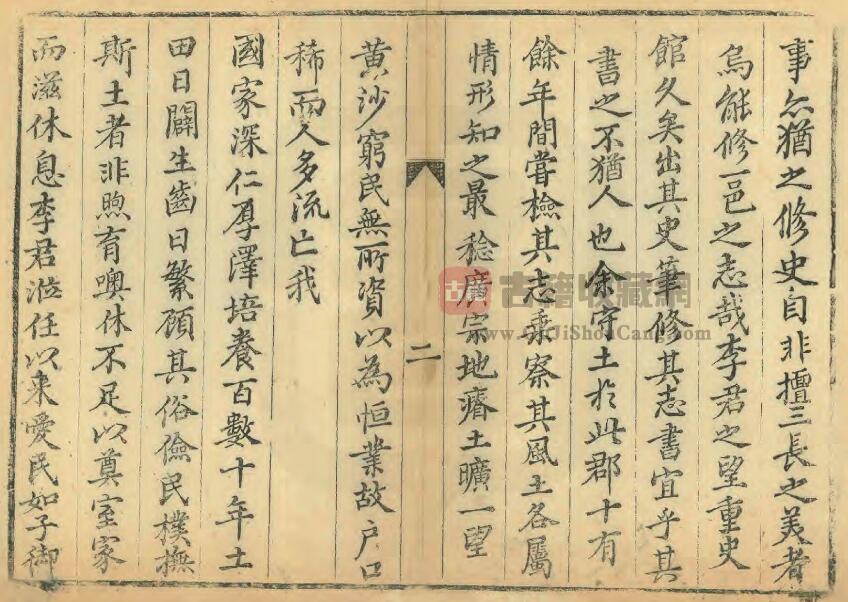 事亦猶之修史自非擅三長之美者
烏能修一邑之志哉李君之望重史
館久矣出其史筆修其志書宜乎其
書之不猶人也余守土於此郡十有
餘年間嘗檢其志乘察其風土各屬
情形知之最稔廣宗地瘠土曠一望
二
黃沙窮民無所資以為恒業故户口
稀而人多流亡我
國家深仁厚澤培養百數十年土
田日闢生齒日繁顧其俗儉民樸撫
斯土者非煦育噢休不足以奠室家
而滋休息李君涖任以来愛民如子御
古籍
古籍收藏網
www.GuJiShouCang.com